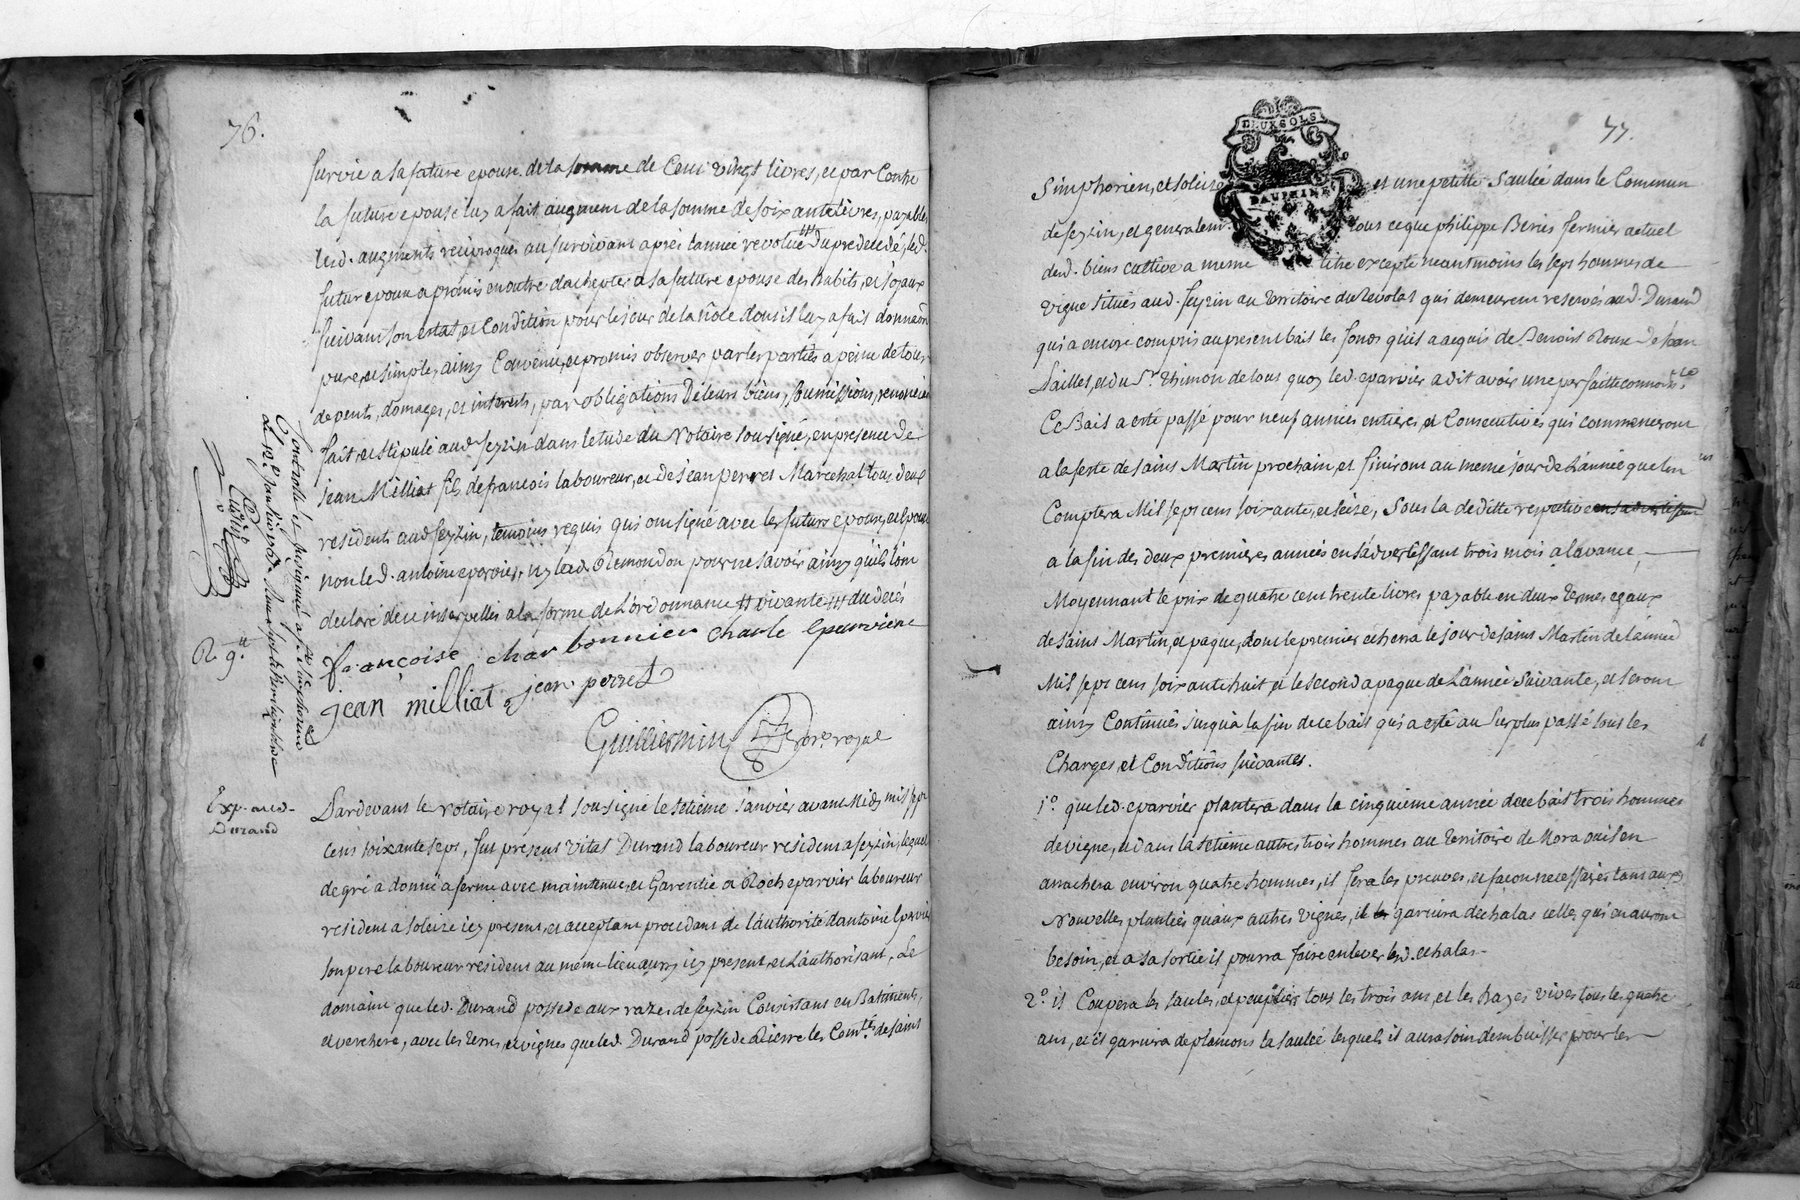 76.
survie a sa future epouse de la somme de Cent vingt livres, et par Contre
la future epouse luy a fait augment de la somme de soixante livres, payables
lesd. augments reciproques au survivant apres l'année revolue # du predecedé, led.
futur epoux a promis en outre d'achepter a sa future epouse des habits, et joyaux
suivant son estat, et Condition pour le jour de la nôce dont il luy a fait donnaon
pure, et simple, ainsy Convenu, et promis observer par les parties a peine de tous
depents, domages, et interests, par obligations de leurs biens, soumissions, renonciaons
fait, et stipulé aud. feyzin dans l'etude du Notaire sousigné, en presence de
jean Milliat fils de francois laboureur, et de jean perret Marechal tous deux
residents aud. feyzin, temoins requis qui ont signé avec les futurs epoux, et
non led. antoine eparvier, ny lad. Remondon pour ne savoir ainsy qu'ils l'ont
declaré de ce interpellés a la forme de l'ordonnance # vivante ## du décés
françoise charbonnier charle Eparviere
jean milliat jean perret
Guilliermin nore. royal
R 9 ll
Controllé
Exp. aud.
Durand
Pardevant le notaire royal sousigné le setieme janvier avant Midy mil sept
cens soixante sept, fut present vital Durand laboureur resident a feyzin, lequel
de gré a donné a ferme avec maintenue, et Garentie a Roch eparvier laboureur
resident a soleize icy present, et acceptant procedant de l'authorité d'antoine Eparvier
son pere laboureur resident au même lieu aussy icy present, et l'authorisant, Le
domaine que led. Durand possede aux razes de feyzin Consistant en Batiments,
et verchere, avec les terres, et vignes que led. Durand possede Rierre les Comtés. de saint
77.
DEUX SOLS
DAUPHINE
Simphorien, et soleize et une petitte saulée dans le Commun
de feyzin, et generalemt. tous ce que philippe Beries fermier actuel
desd. biens cultive a meme titre excepté neantmoins les sept hommes de
vigne situés aud. feyzin au territoire du Revolat qui demeurent reservés aud. Durand
qui a encore compris au present bail les fonds qu'il a acquis de Benoist Roux de jean
Lailles, et du Sr. Thimon de tous quoy led. eparvier a dit avoir une parfaitte connoiss.ce
Ce Bail a esté passé pour neuf années entieres, et Consecutives qui commenceront
a la feste de saint Martin prochain, et finiront au meme jour de l'année que l'on
Comptera Mil sept cens soixante, et seize, sous la deditte respective en s'advertissant
a la fin des deux premieres années en s'advertissant trois mois a l'avance,
Moyennant le prix de quatre cent trente livres payable en deux termes egaux
de saint Martin, et paque, dont le premier echerra le jour de saint Martin de l'année
Mil sept cens soixante huit et le second a paque de l'année suivante, et seront
ainsy Continués jusqu'a la fin de ce bail qui a esté au surplus passé sous les
Charges, et Conditions suivantes.
1°. que led. eparvier plantera dans la cinquieme année de ce bail trois hommes
de vigne, et dans la setieme autres trois hommes au territoire de Mora ou il en
arrachera environ quatre hommes, il fera les preuves, et façon necessaires tant aux
Nouvelles plantées qu'aux autres vignes, il garnira d'echalas celles qui en auront
besoin, et a sa sortie il pourra faire enlever lesd. echalas.
2°. il Coupera les saules, et peupliers tous les trois ans, et les hayes vives tous les quatre
ans, et il garnira de plançons la saulée lesquels il aura soin d'embuisser pour les